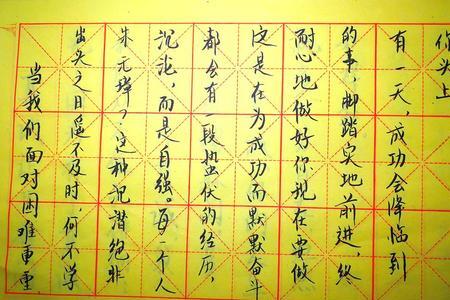 当我们面对困难重重
出头之日遥不及时,何不学
朱元璋?这种沉潜绝非
沉沦,而是自强。每一个人
都会有一段蛰伏的经历,
这是在为成功而默默奋斗
耐心地做好你现在要做
的事,脚踏实地前进,终
有一天,成功会降临到
你头上